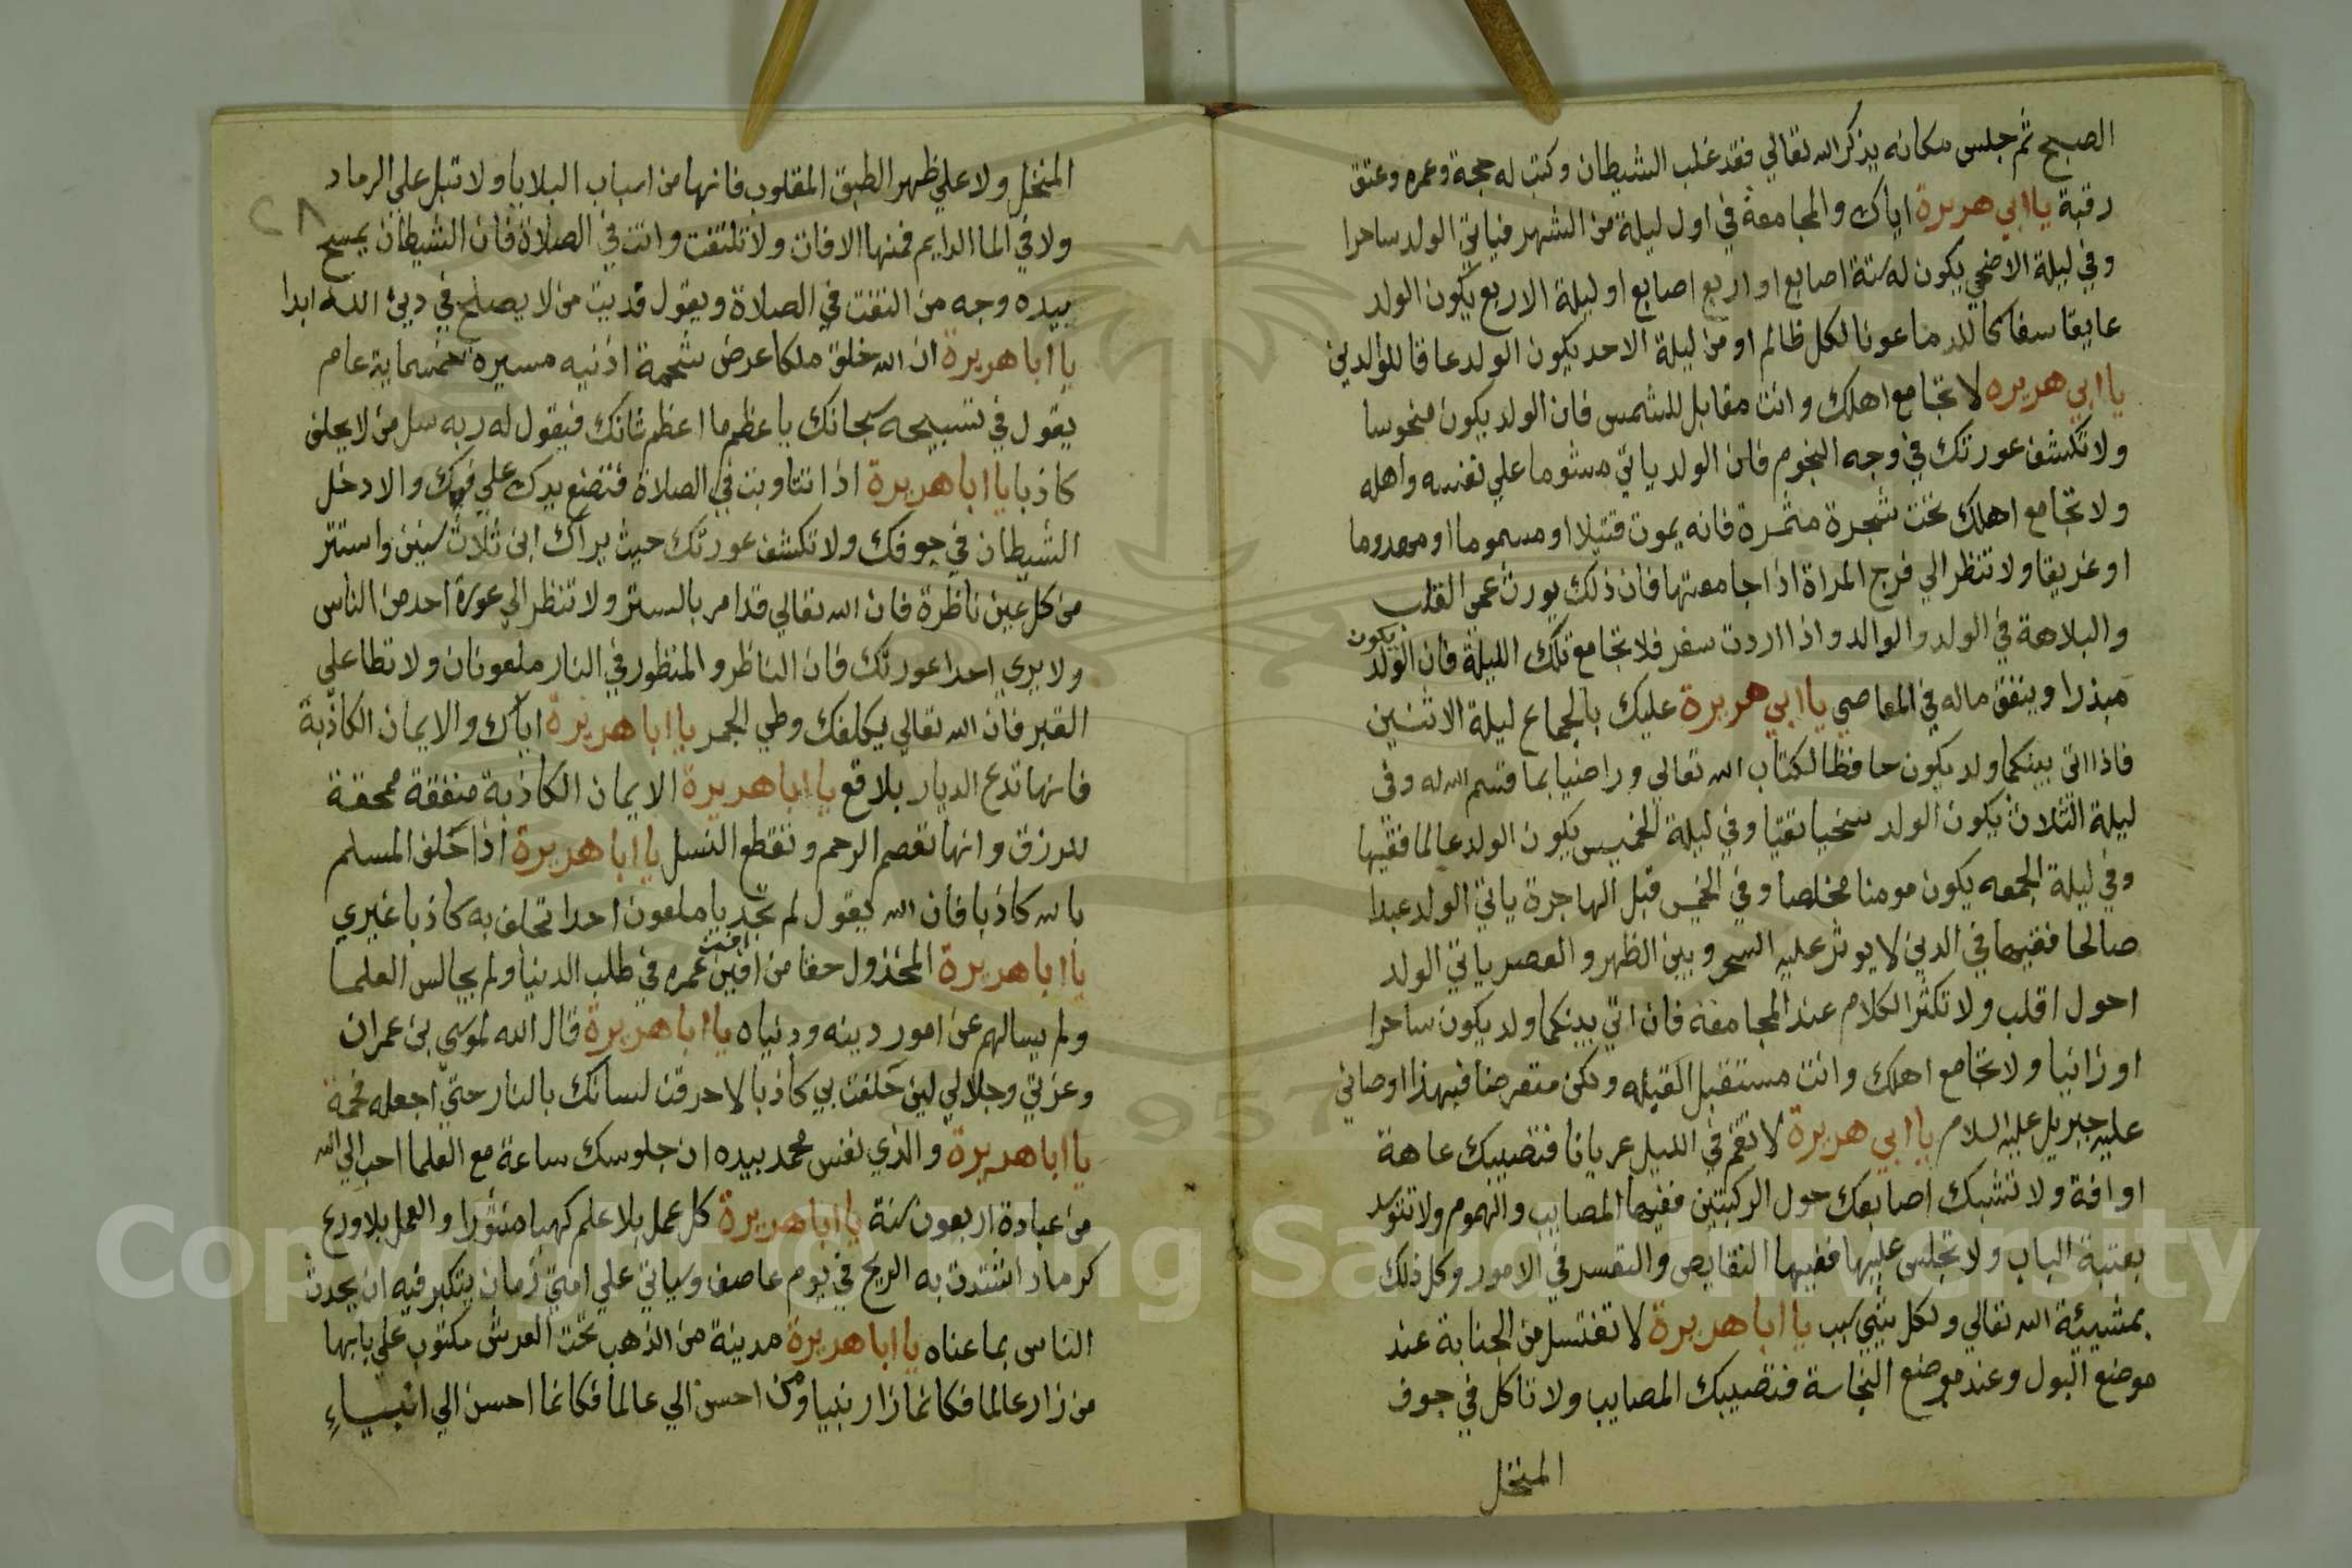 الصبح ثم جلس مكانه يذكر الله تعالي فقد غلب الشيطان وكتب له حجة وعمره وعتق
رقبة يا ابي هريرة اياك والمجامعة في اول ليلة من الشهر فياتي الولد ساحرا
وفي ليلة الاضحي يكون له ستة اصابع او اربع اصابع او ليلة الاربع يكون الولد
عايقا سفاكا للدما عونا لكل ظالم او من ليلة الاحد يكون الولد عاقا للوالدين
يا ابي هريره لا تجامع اهلك وانت مقابل للشمس فان الولد يكون منحوسا
ولا تكشف عورتك في وجه النجوم فان الولد ياتي مشوما علي نفسه واهله
ولا تجامع اهلك تحت شجرة مثمرة فانه يموت قتيلا او مسموما او مهدوما
او غريقا ولا تنظر الي فرج المراة اذا جامعتها فان ذلك يورث عمي القلب
والبلاهة في الولد والوالد واذا اردت سفر فلا تجامع تلك الليلة فان الولد يكون
مبذرا وينفق ماله في المعاصي يا ابي هريرة عليك بالجماع ليلة الاثنين
فاذا اتي بينكما ولد يكون حافظا لكتاب الله تعالي وراضيا بما قسم الله له وفي
ليلة الثلاث يكون الولد سخيا نقيا وفي ليلة الخميس يكون الولد عالما فقيها
وفي ليلة الجمعه يكون مومنا مخلصا وفي الخميس قبل الهاجرة ياتي الولد عبدا
صالحا فقيها في الدين لا يوثر عليه السحر وبين الظهر والعصر ياتي الولد
احول اقلب ولا تكثر الكلام عند المجامعة فان اتي بينكما ولد يكون ساحرا
او زانيا ولا تجامع اهلك وانت مستقبل القبله وتكن متعرضا فبهذا اوصاني
عليه جبريل عليه السلام يا ابي هريرة لا تقم في الليل عريانا فتصيبك عاهة
او افة ولا تشبك اصابعك حول الركبتين ففيها المصايب والهموم ولا تتوكد
بعتبة الباب ولا تجلس عليها ففيها النقايص والتعسر في الامور وكل ذلك
بمشيئة الله تعالي ولكل شي سبب يا ابا هريرة لا تغتسل من الجنابة عند
موضع البول وعند موضع النجاسة فتصيبك المصايب ولا تاكل في جوف
المنخل
٢٨
المنخل ولا علي ظهر الطبق المقلوب فانها من اسباب البلايا ولا تبل علي الرماد
ولا في الما الدايم فمنها الافات ولا تلتفت وانت في الصلاة فان الشيطان يمسح
بيده وجه من التفت في الصلاة ويقول فديت من لا يصلح في دين الله ابدا
يا ابا هريرة ان الله خلق ملكا عرض شحمة اذنيه مسيره خمسماية عام
يقول في تسبيحه سبحانك يا عظيم ما اعظم شانك فيقول له ربه سل من لا يحلف
كاذبا يا ابا هريرة اذا تثاوبت في الصلاة فتضع يدك علي فوك والا دخل
الشيطان في جوفك ولا تكشف عورتك حيث يراك ابن ثلاث سنين واستتر
من كل عين ناظرة فان الله تعالي قد امر بالستر ولا تنظر الي عورة احد من الناس
ولا يري احدا عورتك فان الناظر والمنظور في النار ملعونان ولا تطا علي
القبر فان الله تعالي يكلفك وطي الجمر يا ابا هريرة اياك والايمان الكاذبة
فانها تدع الديار بلاقع يا ابا هريرة الايمان الكاذبة منفقة ممحقة
للرزق وانها تقصم الرحم وتقطع النسل يا ابا هريرة اذا حلف المسلم
بالله كاذبا فان الله يقول لم تجد يا ملعون احدا تحلف به كاذبا غيري
يا ابا هريرة المخذول حقا من افين افنت عمره في طلب الدنيا ولم يجالس العلما
ولم يسالهم عن امور دينه ودنياه يا ابا هريرة قال الله لموسي بن عمران
وعزتي وجلالي لين حلفت بي كاذبا لاحرقن لسانك بالنار حتي اجعله فحمة
يا ابا هريرة والذي نفس محمد بيده ان جلوسك ساعة مع العلما احب الي الله
من عبادة اربعون سنة يا ابا هريرة كل عمل بلا علم كهبا منثورا والعمل بلا ورع
كرماد اشتدت به الريح في يوم عاصف وسياتي علي امتي زمان يتكبر فيه ان يحدث
الناس بما عناه يا ابا هريرة مدينة من الذهب تحت العرش مكتوب علي بابها
من زار عالما فكانما زار نبيا ومن احسن الي عالما فكانما احسن الي انبياء
Copyright © King Saud University
957